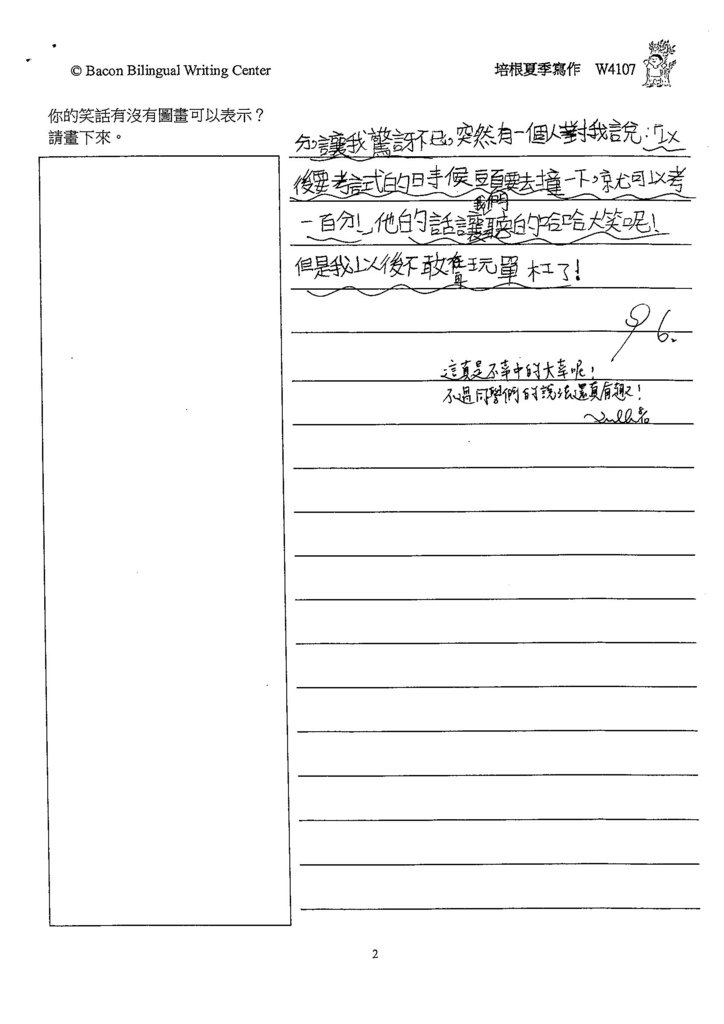 © Bacon Bilingual Writing Center
培根夏季寫作 W4107
你的笑話有沒有圖畫可以表示？
請畫下來。
分，讓我驚訝不已。突然有一個人對我說：「以
後要考試的時候頭要去撞一下，就可以考
一百分！」他的話讓我們聽的哈哈大笑呢！
但是我以後不敢在玩單杠了！
96.
這真是不幸中的大幸呢！
不過同學們的說法還真有趣！
2